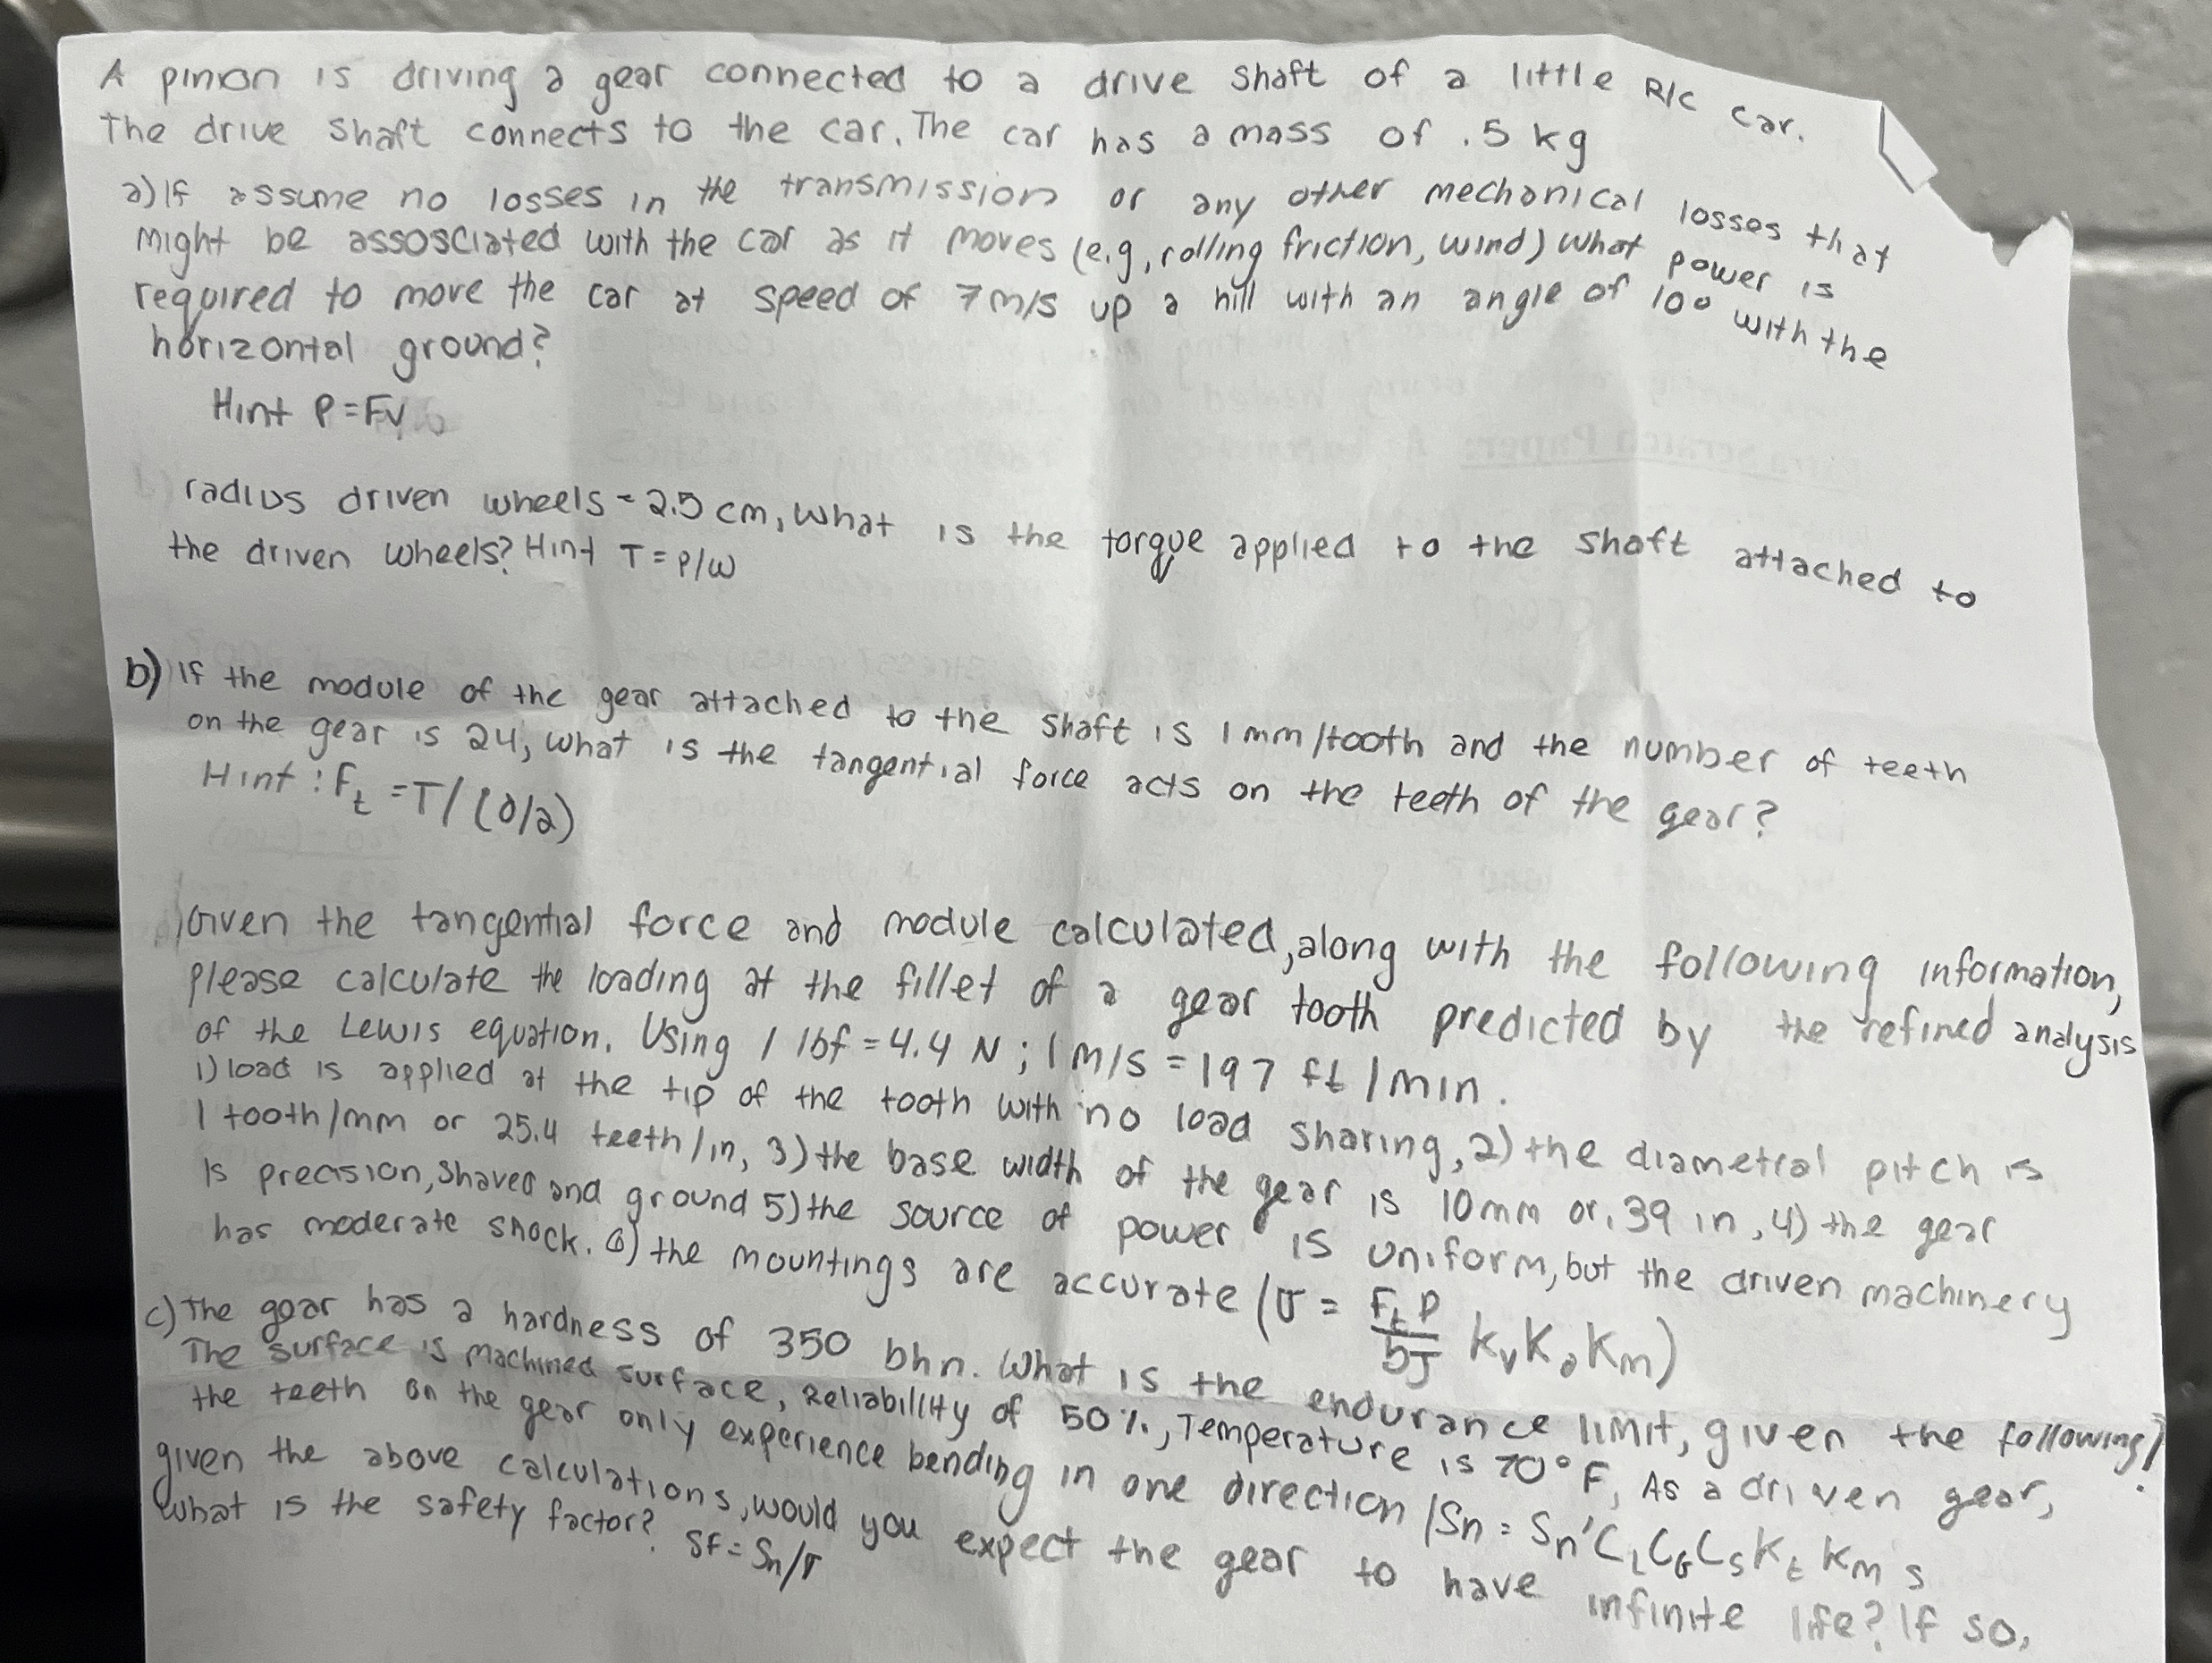 A pinion is driving a gear connected to a drive shaft of a little R/C car.
The drive shaft connects to the car. The car has a mass of .5 kg
a) If assume no losses in the transmission or any other mechanical losses that
might be assosciated with the car as it moves (e.g, rolling friction, wind) what power is
required to move the car at speed of 7 m/s up a hill with an angle of 10° with the
horizontal ground?
Hint P=Fv
radius driven wheels = 2.5 cm, what is the torque applied to the shaft attached to
the driven wheels? Hint T = P/ω
b) If the module of the gear attached to the shaft is 1 mm/tooth and the number of teeth
on the gear is 24, what is the tangential force acts on the teeth of the gear?
Hint : Ft = T/(D/2)
Given the tangential force and module calculated, along with the following information,
please calculate the loading at the fillet of a gear tooth predicted by the refined analysis
of the Lewis equation. Using 1 lbf = 4.4 N ; 1 m/s = 197 ft/min.
1) load is applied at the tip of the tooth with no load sharing, 2) the diametral pitch is
1 tooth/mm or 25.4 teeth/in, 3) the base width of the gear is 10mm or .39 in, 4) the gear
is precision, shaved and ground 5) the source of power is uniform, but the driven machinery
has moderate shock. 6) the mountings are accurate (σ = FtP/bJ KvKoKm)
c) The gear has a hardness of 350 bhn. What is the endurance limit, given the following?
The surface is machined surface, Reliability of 50%, Temperature is 70°F, As a driven gear,
the teeth on the gear only experience bending in one direction /Sn = Sn'CLCGCsKtKms
given the above calculations, would you expect the gear to have infinite life? If so,
what is the safety factor? SF = Sn/σ